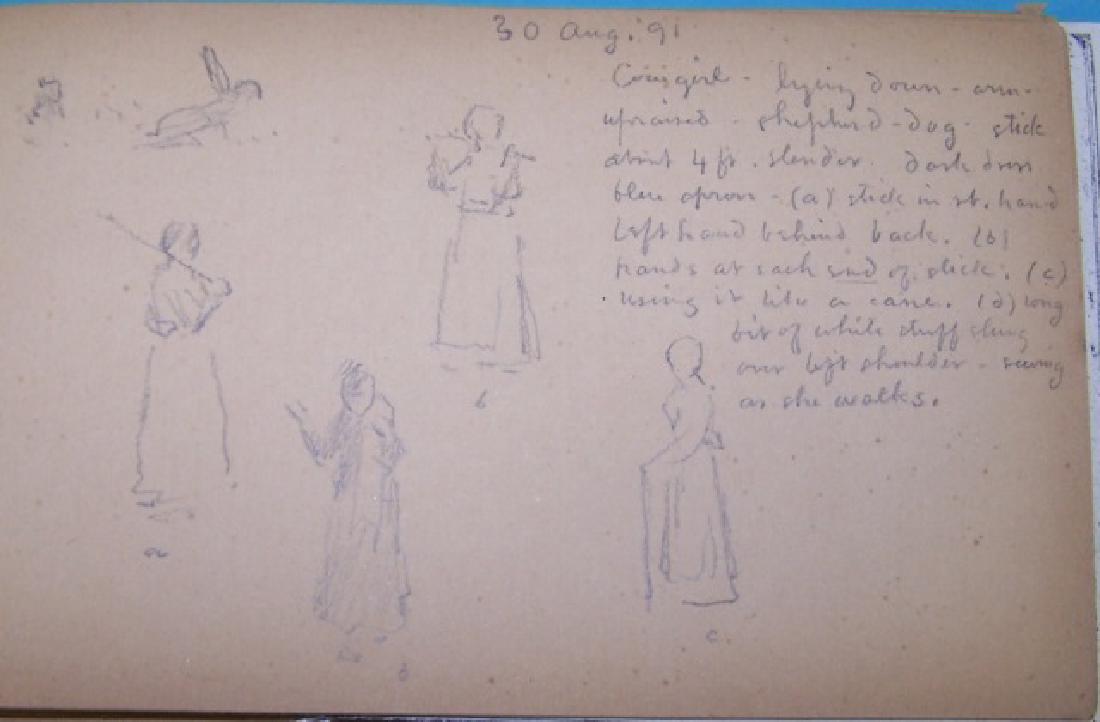 30 Aug. '91
Cowgirl - lying down - arm -
upraised - shepherd - dog - stick
about 4 ft. slender. dark dress
blue apron - (a) stick in rt. hand
left hand behind back. (b)
hands at each end of stick. (c)
using it like a cane. (d) long
bit of white stuff slung
over left shoulder - sewing
as she walks.
b
a
c.
d